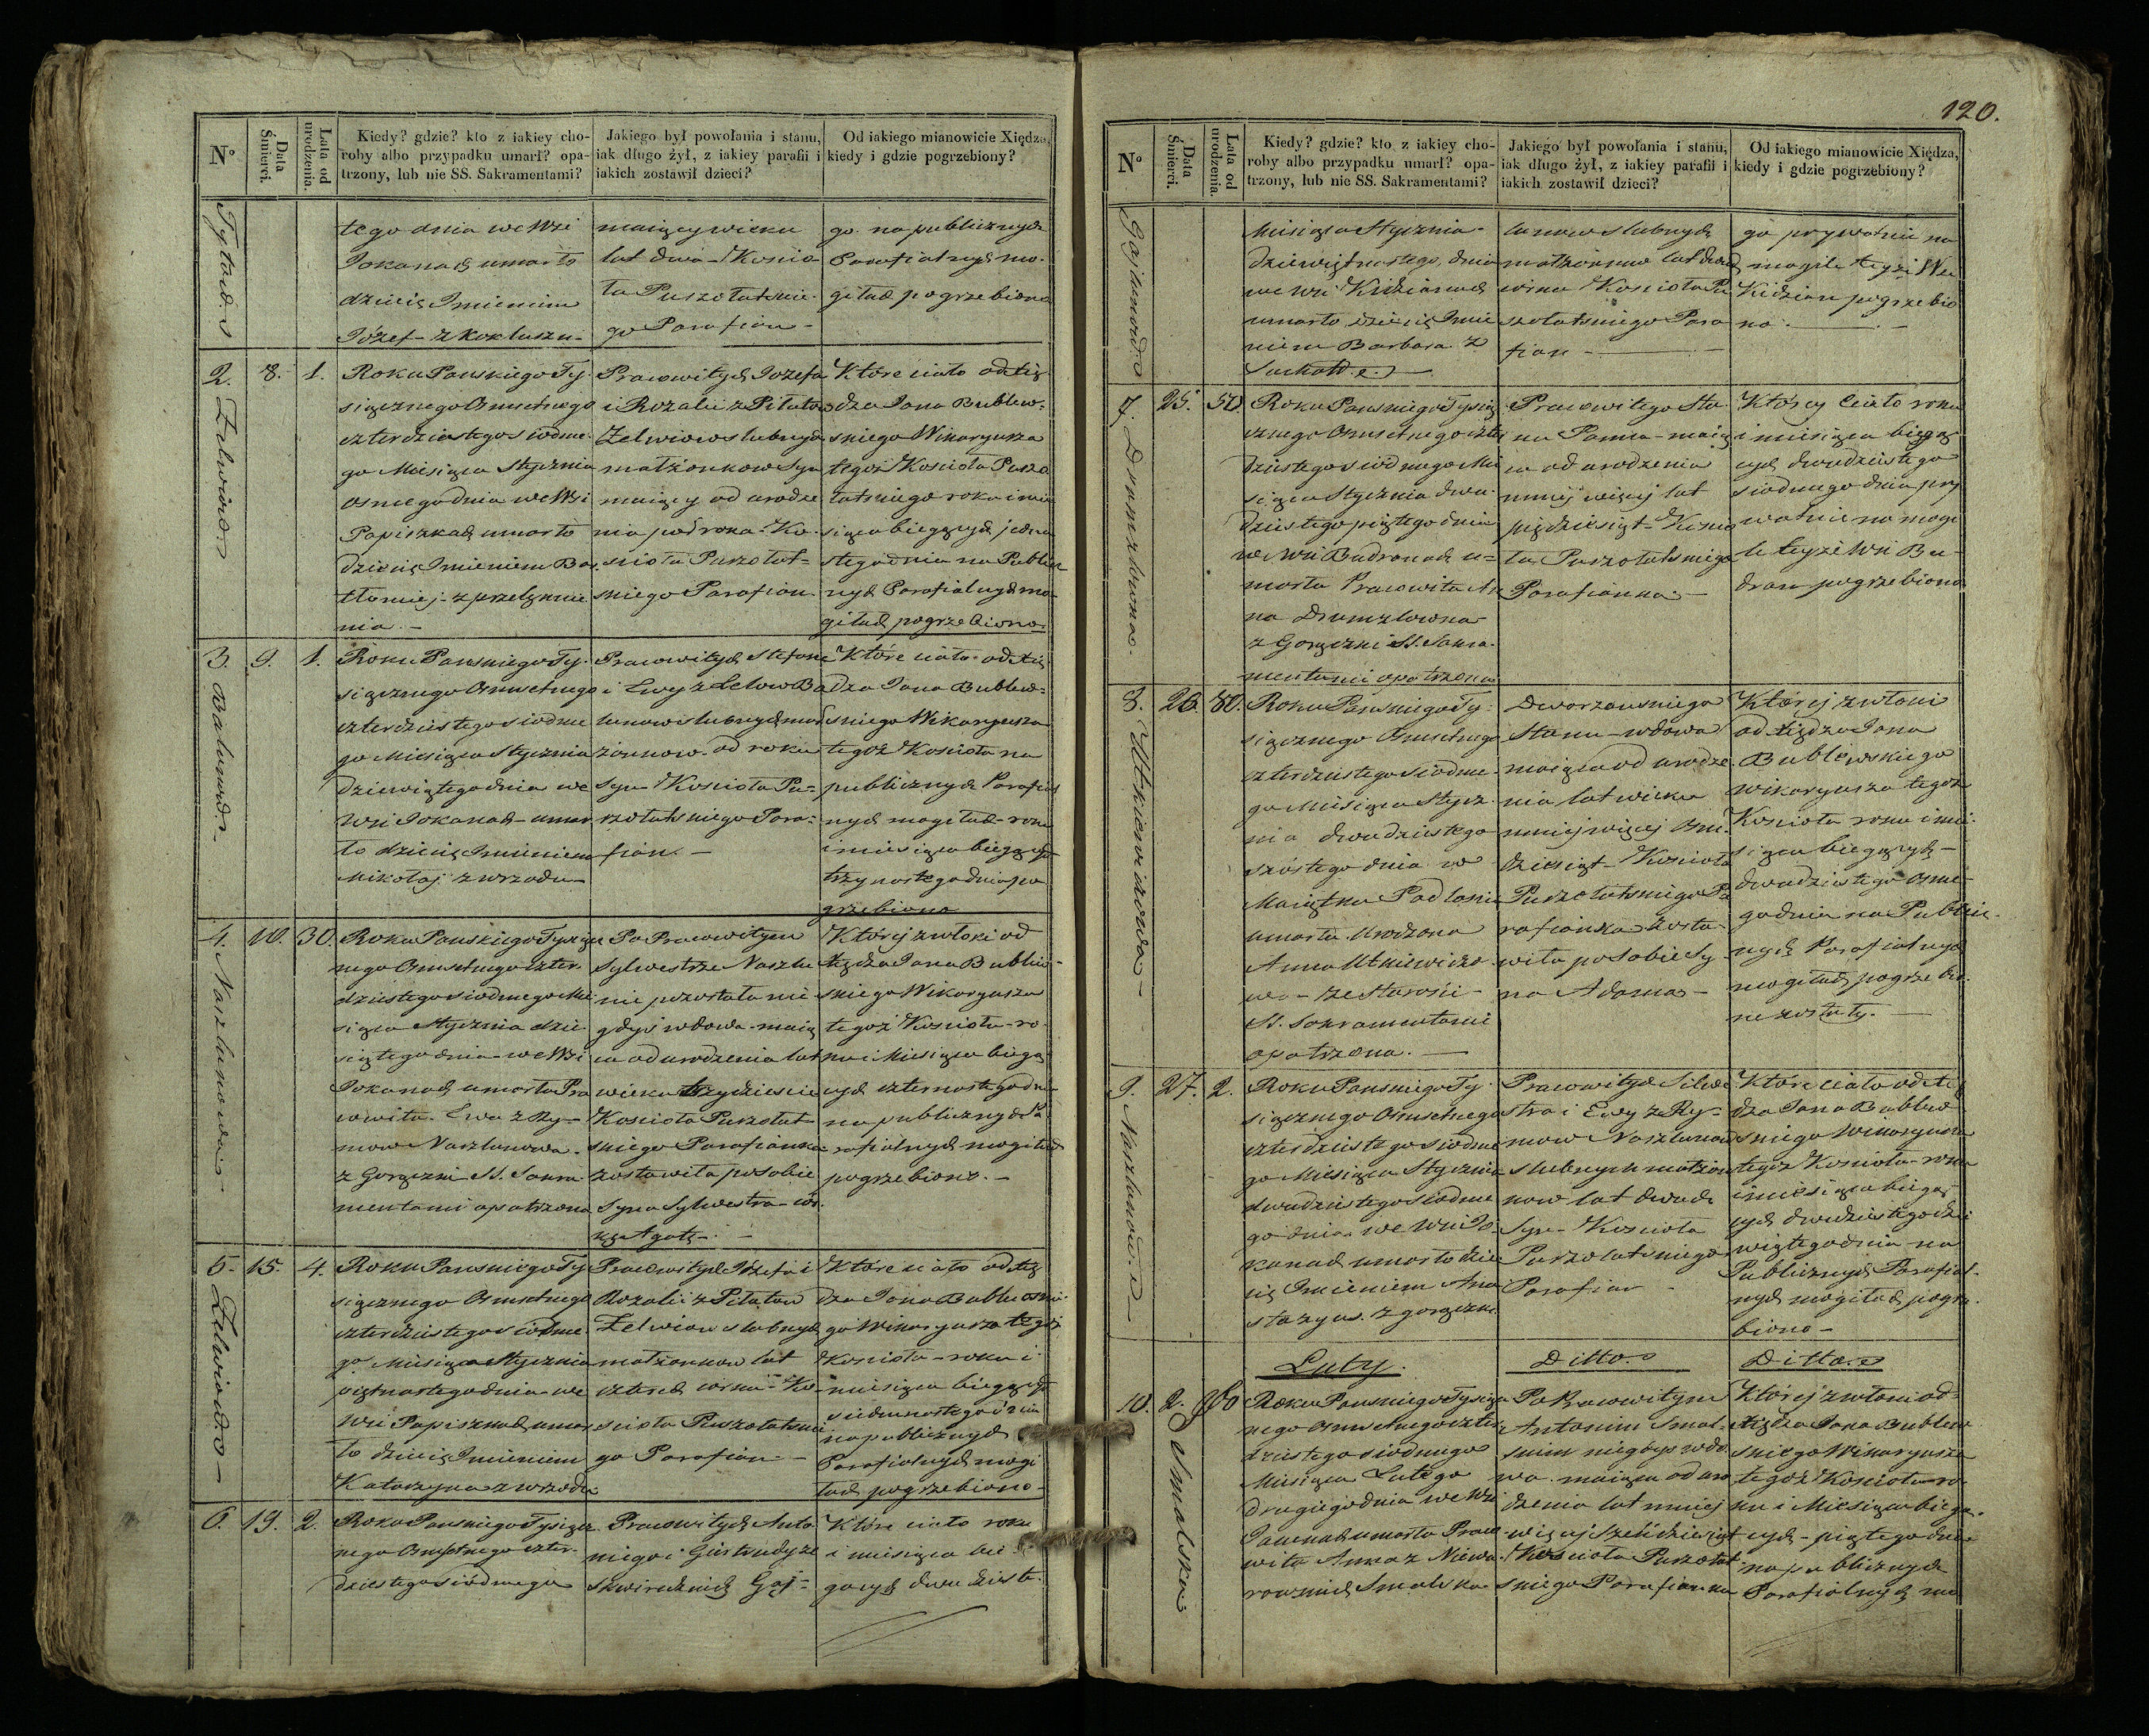 120.
Nº
Data Śmierci.
Lata od urodzenia.
Kiedy? gdzie? kto z iakiey cho-
roby albo przypadku umarł? opa-
trzony, lub nie SS. Sakramentami?
Jakiego był powołania i stanu,
iak długo żył, z iakiey parafii i
iakich zostawił dzieci?
Od iakiego mianowicie Xiędza,
kiedy i gdzie pogrzebiony?
tego dnia we Wsi
Jokanach umarło
dziecię Imieniem
Józef - z Kokluszu -
maiący wieku
lat dwa - Kościo
ła Puszołatskie-
go Parafian -
go na publicznych
Parafialnych mo-
giłach pogrzebiono
2.
8.
1.
Roku Pańskiego Ty-
siącznego Ośmsetnego
czterdziestego siódme-
go Miesiąca Stycznia
ósmego dnia we Wsi
Papiszkach umarło
dziecię Imieniem Bar
tłomiej - z przelęknie
nia -
Pracowitych Jozefa
i Rozalii z Piłatow
Zelwiow slubnych
małżonkow Syn
maiący od urodze
nia pół roka - Ko-
scioła Puszołat-
skiego Parafian
Które ciało od Xię
dza Jana Bublew-
skiego Wikaryusza
tegoż Kościoła Puszo
łatskiego roku i mie
siąca bieżących jedena
stego dnia na Publicz
nych Parafialnych mo-
giłach pogrzebiono
3.
9.
1.
Roku Pańskiego Ty-
siącznego Ośmsetnego
czterdziestego siódme
go Miesiąca Stycznia
dziewiątego dnia we
Wsi Jokanach - umar
ło dziecię Imieniem
Mikołaj z wrzodu -
Pracowitych Stefana
i Ewy z
slubnych mał
żonkow - od roku
Syn - Kościoła Pu-
szołatskiego Para-
fian. -
Które ciało od Xię
dza Jana Bublew-
skiego Wikaryusza
tegoż Kościoła na
publicznych Parafial
nych mogiłach - roku
i miesiąca bieżących
trzynastego dnia po
grzebiono
4. Naszlunowa
10.
30.
Roku Pańskiego Tysiącz
nego Ośmsetnego czter-
dziestego siódmego Mie
siąca Stycznia dzie
siątego dnia - we Wsi
Jokanach umarła Pra
cowita - Ewa z Ry-
mow Naszlunowa -
z Gorączki SS. Sakra
mentami opatrzona
Po Pracowitym
Sylwestrze Naszlu
nie pozostała nie
gdyś wdowa - maią
ca od urodzenia lat
wieku trzydzieście
Kościoła Puszołat
skiego Parafianka
zostawiła po sobie
Syna Sylwestra - cór
kę Agatę -
Której zwłoki od
Xiędza Jana Bublew-
skiego Wikaryusza
tegoż Kościoła - ro-
ku i Miesiąca bieżą
cych czternastego dnia
na publicznych Pa
rafialnych mogiłach
pogrzebiono. -
5.
15.
4.
Roku Pańskiego Ty
siącznego Ośmsetnego
czterdziestego siódme
go Miesiąca Stycznia
piętnastego dnia - we
Wsi Papiszkach umar
ło dziecię Imieniem
Katarzyna z wrzodu
Pracowitych Józefa i
Rozalii z Piłatow
Zelwiow slubnych
małżonkow lat
czterech corka - Ko-
scioła Puszołatskie
go Parafian -
Które ciało od Xię
dza Jana Bublewskie-
go Wikaryusza tegoż
Kościoła - roku i
miesiąca bieżących
siedmnastego dnia
na publicznych
Parafialnych mogi
łach pogrzebiono -
6.
19.
2.
Roku Pańskiego Tysiącz
nego Ośmsetnego czter-
dziestego siódmego
Pracowitych Anto
niego i Giertrudy ze
Gaj-
Które ciało roku
i miesiąca bie-
żących dwudzieste-
Nº
Data Śmierci.
Lata od urodzenia.
Kiedy? gdzie? kto z iakiey cho-
roby albo przypadku umarł? opa-
trzony, lub nie SS. Sakramentami?
Jakiego był powołania i stanu,
iak długo żył, z iakiey parafii i
iakich zostawił dzieci?
Od iakiego mianowicie Xiędza,
kiedy i gdzie pogrzebiony?
Miesiąca Stycznia -
dziewiętnastego dnia
we Wsi Kidzianach
umarło dziecię Imie
niem Barbara z
Suchot.
lunow slubnych
małżonkow lat dwuch
corka Kościoła Pu
szołatskiego Para
fian -
go prywatnie na
mogile tejże Wsi
Kidzian pogrzebio
no. -
7.
25.
50.
Roku Pańskiego Tysią
cznego Ośmsetnego czter
dziestego siódmego Mie
siąca Stycznia dwu-
dziestego piątego dnia
we Wsi Budronach u-
marła Pracowita An
na
z Gorączki SS. Sakra-
mentami opatrzona
Pracowitego Sta-
nu Panna - maią
ca od urodzenia
mniej więcej lat
pięćdziesiąt - Kościo
ła Puszołatskiego
Parafianka. -
Której Ciało roku
i miesiąca bieżą-
cych dwudziestego
siódmego dnia pry
watnie na mogi
le tejże Wsi Bu-
dron pogrzebiono
8. Utkiewiczowa -
26.
80.
Roku Pańskiego Ty-
siącznego Ośmsetnego
czterdziestego siódme-
go Miesiąca Stycz-
nia dwudziestego
szóstego dnia w
Maiątku Podlasiu
umarła Urodzona
Anna Utkiewiczo-
wa - ze Starości -
SS. Sakramentami
opatrzona. -
Dworzanskiego
Stanu - wdowa
maiąca od urodze
nia lat wieku
mniej więcej Ośm-
dziesiąt - Kościoła
Puszołatskiego Pa
rafianka zosta-
wiła po sobie Sy
na Adama -
Której zwłoki
od Xiędza Jana
Bublewskiego
wikaryusza tegoż
Kościoła roku i mie-
siąca bieżących -
dwudziestego ósme-
go dnia na Publicz-
nych Parafialnych
mogiłach pogrzebio-
ne zostały. -
9.
27.
2.
Roku Pańskiego Ty-
siącznego Ośmsetnego
czterdziestego siódme
go Miesiąca Stycznia
dwudziestego siódme
go dnia we Wsi Jo-
kanach umarło dzie
cię Imieniem Ana
stazyus. z gorączki
Pracowitych Silwe
stra i Ewy z Ry-
mow Naszlunow
slubnych małżon
kow lat dwuch
Syn - Kościoła
Puszołatskiego
Parafian -
Które ciało od Xię
dza Jana Bublew
skiego Wikaryusza
tegoż Kościoła - roku
i miesiąca bieżą
cych dwudziestego dzie
wiątego dnia - na
Publicznych Parafial-
nych mogiłach pogrze-
biono -
Luty.
Ditto.
Ditto.
10. Smalska
2.
60
Roku Pańskiego Tysiącz
nego Ośmsetnego czter
dziestego siódmego
Miesiąca Lutego
drugiego dnia we Wsi
umarła Praco
wita Anna z
Smalska
Po Pracowitym
Antonim Smal-
skim niegdyś wdo
wa - maiąca od uro
dzenia lat mniej
więcej sześćdziesiąt
Kościoła Puszołat
skiego Parafianka
Której zwłoki od
Xiędza Jana Bublew
skiego Wikaryusza
tegoż Kościoła ro
ku i Miesiąca bieżą-
cych - piątego dnia
na publicznych
Parafialnych mo